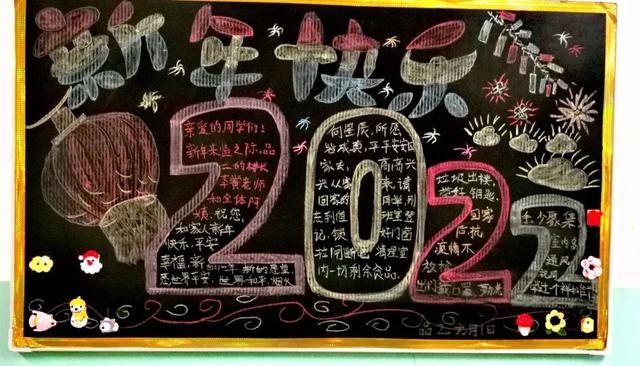 新年快乐
2022
亲爱的同学们！
新年来临之际,品
二的楼长
李黉老师
和全体阿
姨,祝您,
和家人新年
快乐,平安
幸福,新的一年,新的愿望
愿世界平安,世界和平,烟火
向星辰,所愿
皆成真,平平安安回
家去,高高兴
兴从家来,请
回家的同学,别
忘到值班室登
记,锁好门窗
拉闸断电,清理室
内一切剩余食品.
垃圾出楼,
带好钥匙,
回家
后抗
疫情不
放松
出门戴口罩,勤洗
手,少聚集
室内多
通风
祝同
学过个祥和年!
品二 元月1日